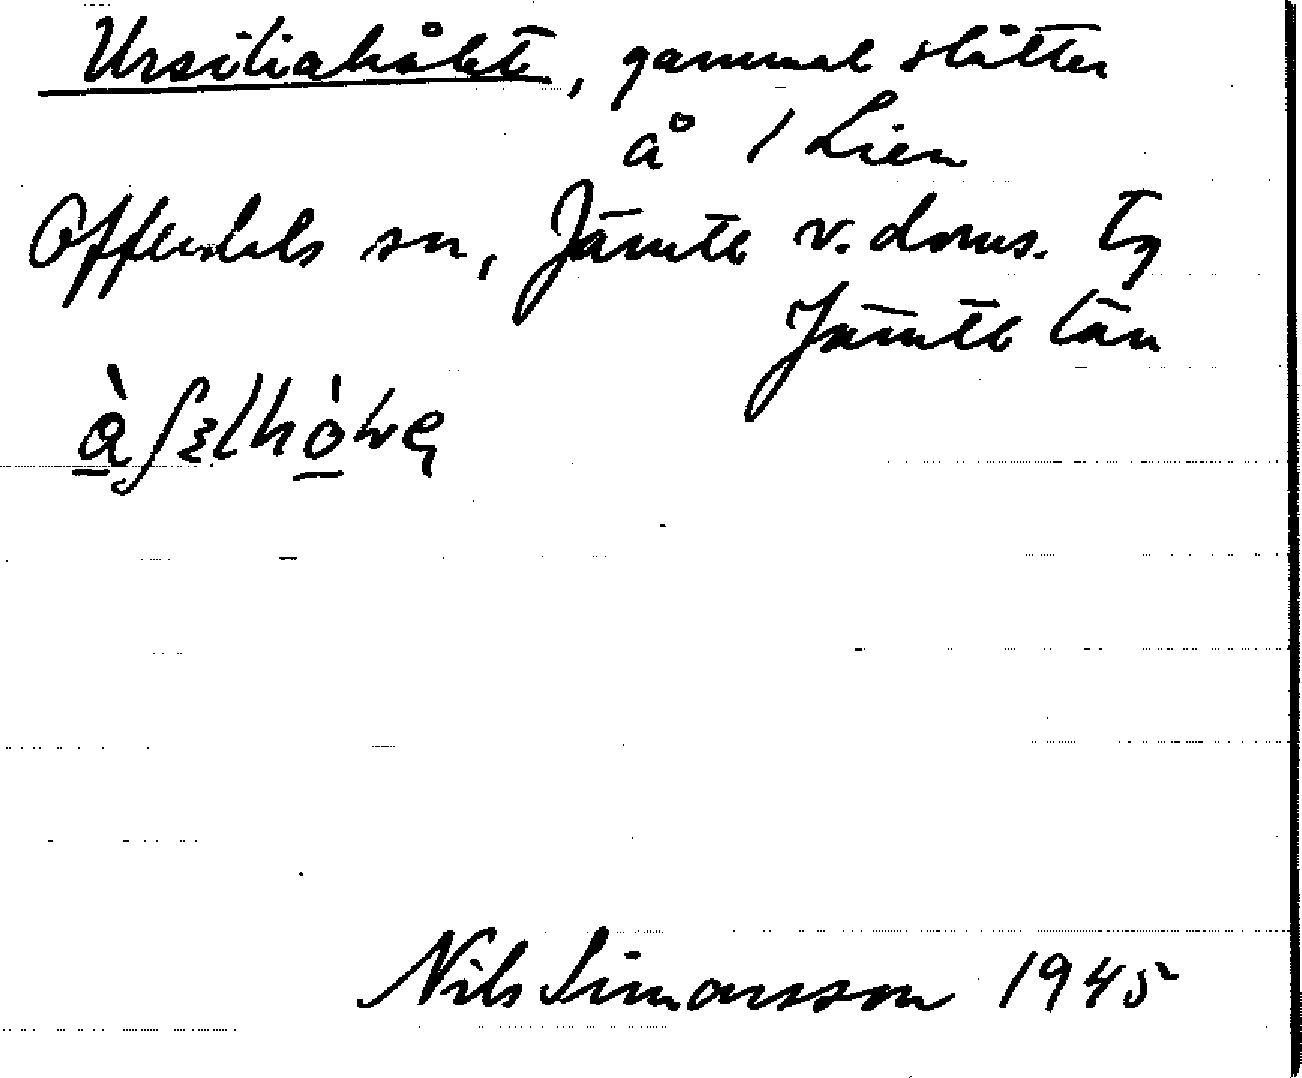 Ursiliahålet, gammal slåtter
å 1 Lien
Offerdals sn, Jämtl v. doms. tg
Jämtl län
Nils Simonsson 1945